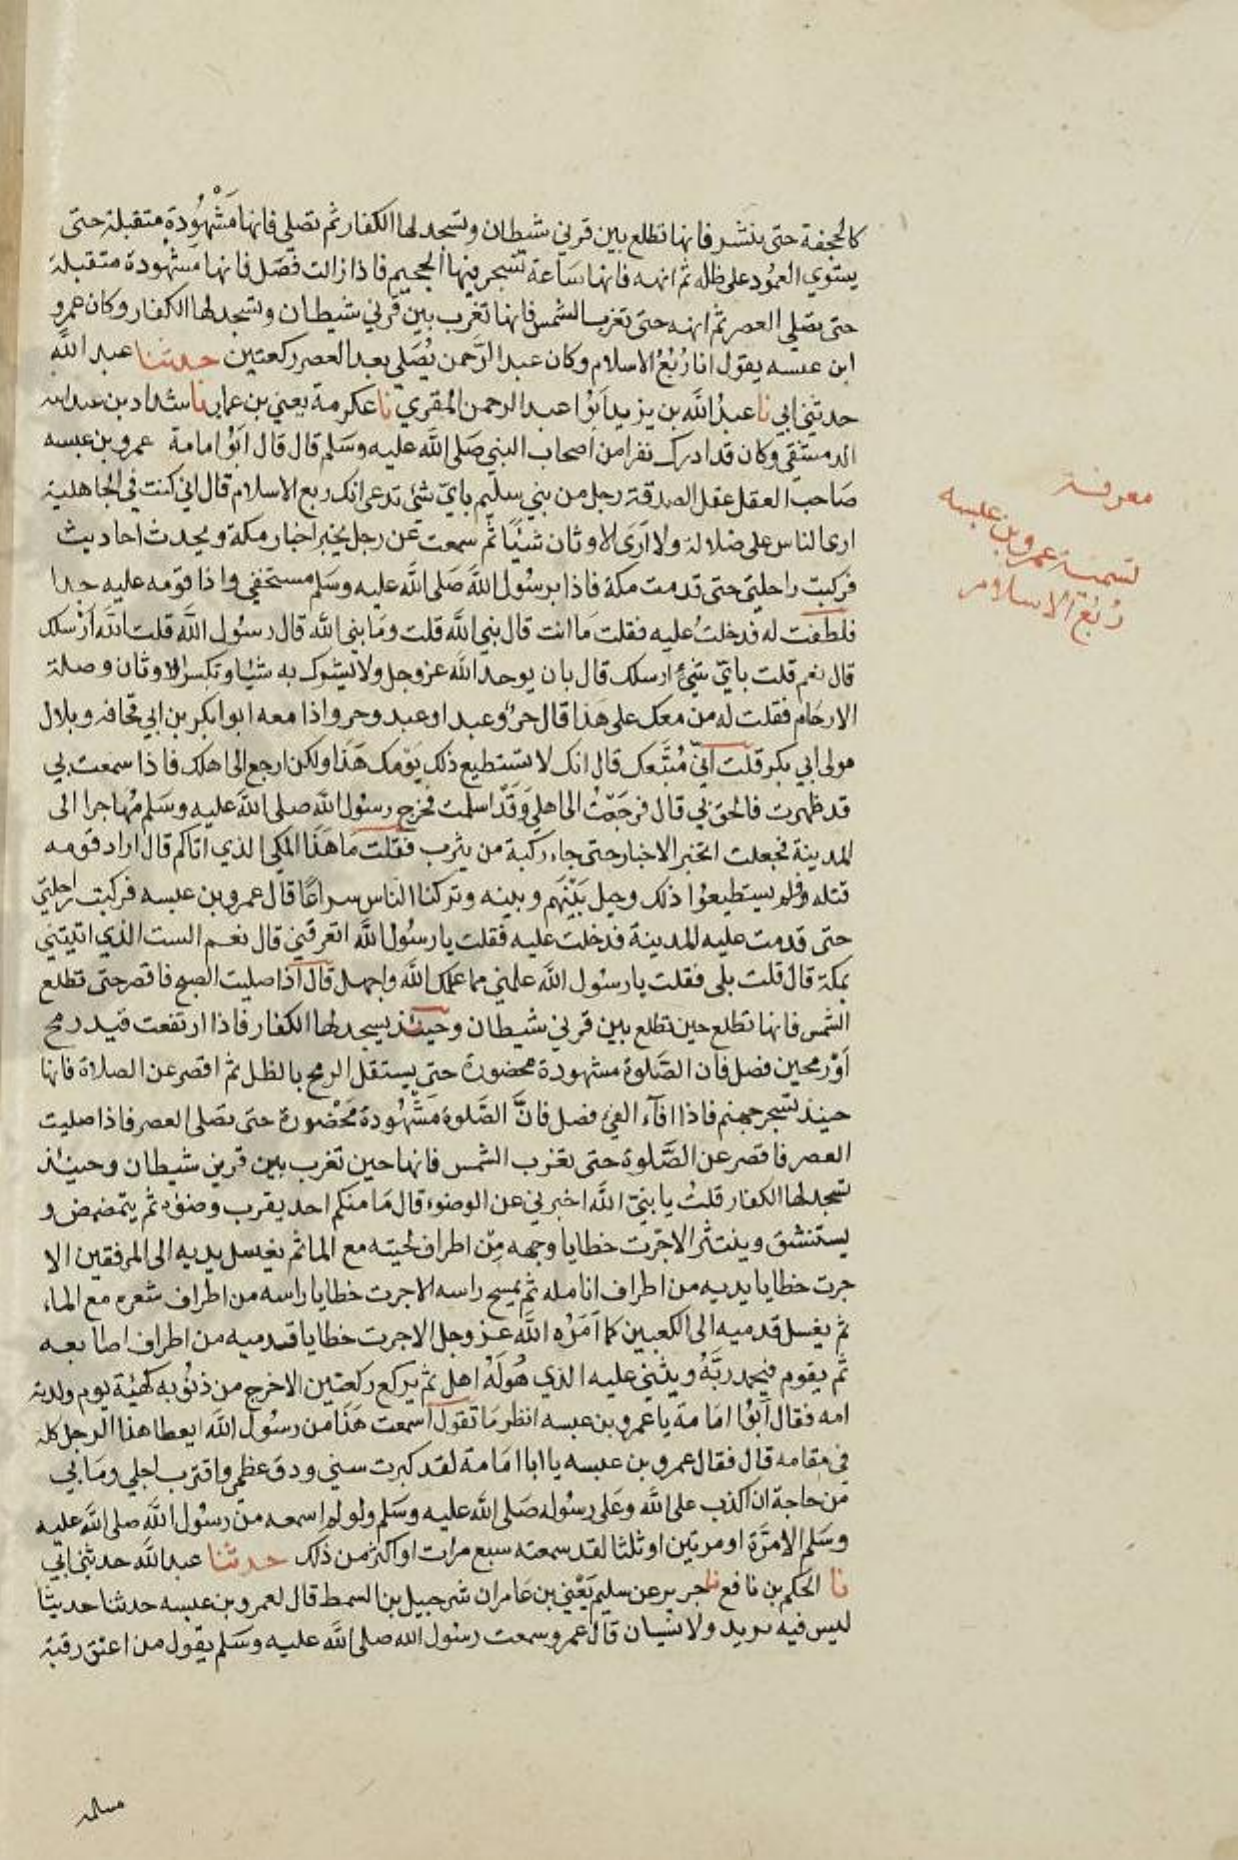 كالحجفة حتى ينتشر فانها تطلع بين قرني شيطان وتسجد لها الكفار ثم تصلي فانها مَشْهُودَة متقبلة حتى
يستوي العمود على ظله ثم انهه فانها ساعة تسجر فيها الجحيم فاذا زالت فصل فانها مشهودة متقبلة
حتى تصلي العصر ثم انهه حتى تغرب الشمس فانها تغرب بين قرني شيطان وتسجد لها الكفار وكان عمرو
ابن عبسه يقول انا رُبُعُ الاسلام وكان عبد الرَّحمن يُصَلي بعد العصر ركعتين حدثنا عبد الله
حدثني ابي نا عبدُ الله بن يزيد اَبُوا عبد الرحمن المُقري نا عكرمة يعني بن عمار نا شداد بن عبد الله
الدمشقي وكان قد ادرك نفرا من اصحاب النبي صَلى الله عليه وسَلم قال قال اَبُوا امامة عمرو بن عبسه
صَاحب العقل عقل الصدقة رجل من بني سليم بايّ شئ تدعي انك ربع الاسلام قال اني كنت في الجاهلية
ارى الناس على ضلالة ولا اَرَى الاوثان شئًا ثم سمعت عَن رجل يُخبر اخبار مكة ويحدث احاديث
فركبت راحلتي حتى قدمت مكة فاذا برسُول الله صَلى الله عليه وسَلم مستخفي واذا قومه عليه جدا
فلطفت له فدخلتُ عليه فقلت مَا انت قال نبي الله قلت ومَا نبي الله قال رسُول الله قلت الله اَرْسلك
قال نعم قلت بايّ شئ ارسلك قال بان يوحد الله عز وجل ولا يشرك به شيا وتكسر الاوثان وصلة
الارحام فقلت له من معك على هذا قال حرّ وعبد او عبد وحر واذا معه ابوا بكر بن ابي قحافه وبلال
مولى ابي بكر قلت انيّ مُتَّبعك قال انك لا تستطيع ذلك يَوْمك هَذا ولكن ارجع الى اهلك فاذا سمعت بي
قد ظهرت فالحق بي قال فرجَعْتُ الى اهلي وَقَدْ اسلمت فخرج رسُول الله صلى الله عليه وسَلم مُهاجرا الى
المدينة فجعلت اتخبر الاخبار حتى جاء ركبة من يثرب فقلت مَا هَذَا المكي الذي اتاكم قال اراد قومه
قتله فلم يستطيعُوا ذلك وحيل بَيْنَهم وبينه وتركنا الناس سراعًا قال عمرو بن عبسه فركبت راحلتي
حتى قدمت عليه المدينة فدخلت عليه فقلت يا رسُول الله اتعرفني قال نعم الست الذي اتيتني
بمكة قال قلت بلى فقلت يا رسُول الله علمني مما علمك الله واجهل قال اذا صليت الصبح فاقصر حتى تطلع
الشمس فانها تطلع حين تطلع بين قرني شيطان وحينئذ يسجد لها الكفار فاذا ارتفعت قيد رمح
اَوْ رمحين فصل فان الصَّلوة مشهودة محضورة حتى يستقل الرمح بالظل ثم اقصر عن الصلاة فانها
حينئذ تسجر جهنم فاذا افآء الفئ فصل فانَّ الصَّلوة مَشْهُودة مَحْضُورة حتى تصَلي العصر فاذا صليت
العصر فاقصر عن الصَّلوة حتى تغرب الشمس فانها حين تغرب بين قرني شيطان وحينئذ
تسجد لها الكفار قلتُ يا نبيّ الله اخبرني عن الوضوء قال مَا منكم احد يقرب وضؤه ثم يتمضمض و
يستنشق وينتثر الا جرّت خطايا وجهه مِّن اطراف لحيته مع الما ثم يغسل يديه الى المرفقين الا
جرت خطايا يديه من اطراف انامله ثم يمسح راسه الا جرت خطايا راسه من اطراف شعره مع الماء
ثم يغسل قدميه الى الكعبين كما اَمَرَه الله عز وجل الا جرت خطايا قدميه من اطراف اصابعه
ثم يقوم فيحمد ربَّهُ ويثني عليه الذي هُو لَهُ اهل ثم يركع ركعتين الا خرج من ذنُوبه كهيئة يوم ولدته
امه فقال اَبُوا امَامة يا عمرو بن عبسه انظر مَا تقول اسمعت هَذَا من رسُول الله ايعطا هذا الرجل كله
في مقامه قال فقال عمرو بن عبسه يا ابا امَامة لقد كبرت سني ودق عظمي واقترب اجلي ومَا بي
من حاجة ان اكذب على الله وعَلى رسُوله صَلى الله عليه وسَلم ولو لم اسمعه من رسُول الله صلى الله عليه
وسَلم الا مرَّة او مرتين او ثلثا لقد سمعته سبع مرات او اكثر من ذلك حدثنا عبد الله حدثني ابي
نا الحكم بن نافع نا جرير عن سليم يَعْني بن عَامر ان شرحبيل بن السمط قال لعمرو بن عبسه حدثنا حديثا
ليس فيه تزيد ولا نسيان قال عمرو سمعت رسُول الله صلى الله عليه وسَلم يقول من اعتق رقبة
معرفة
تسمية عمرو بن عبسه
رُبُعُ الاسلام
مسلمه